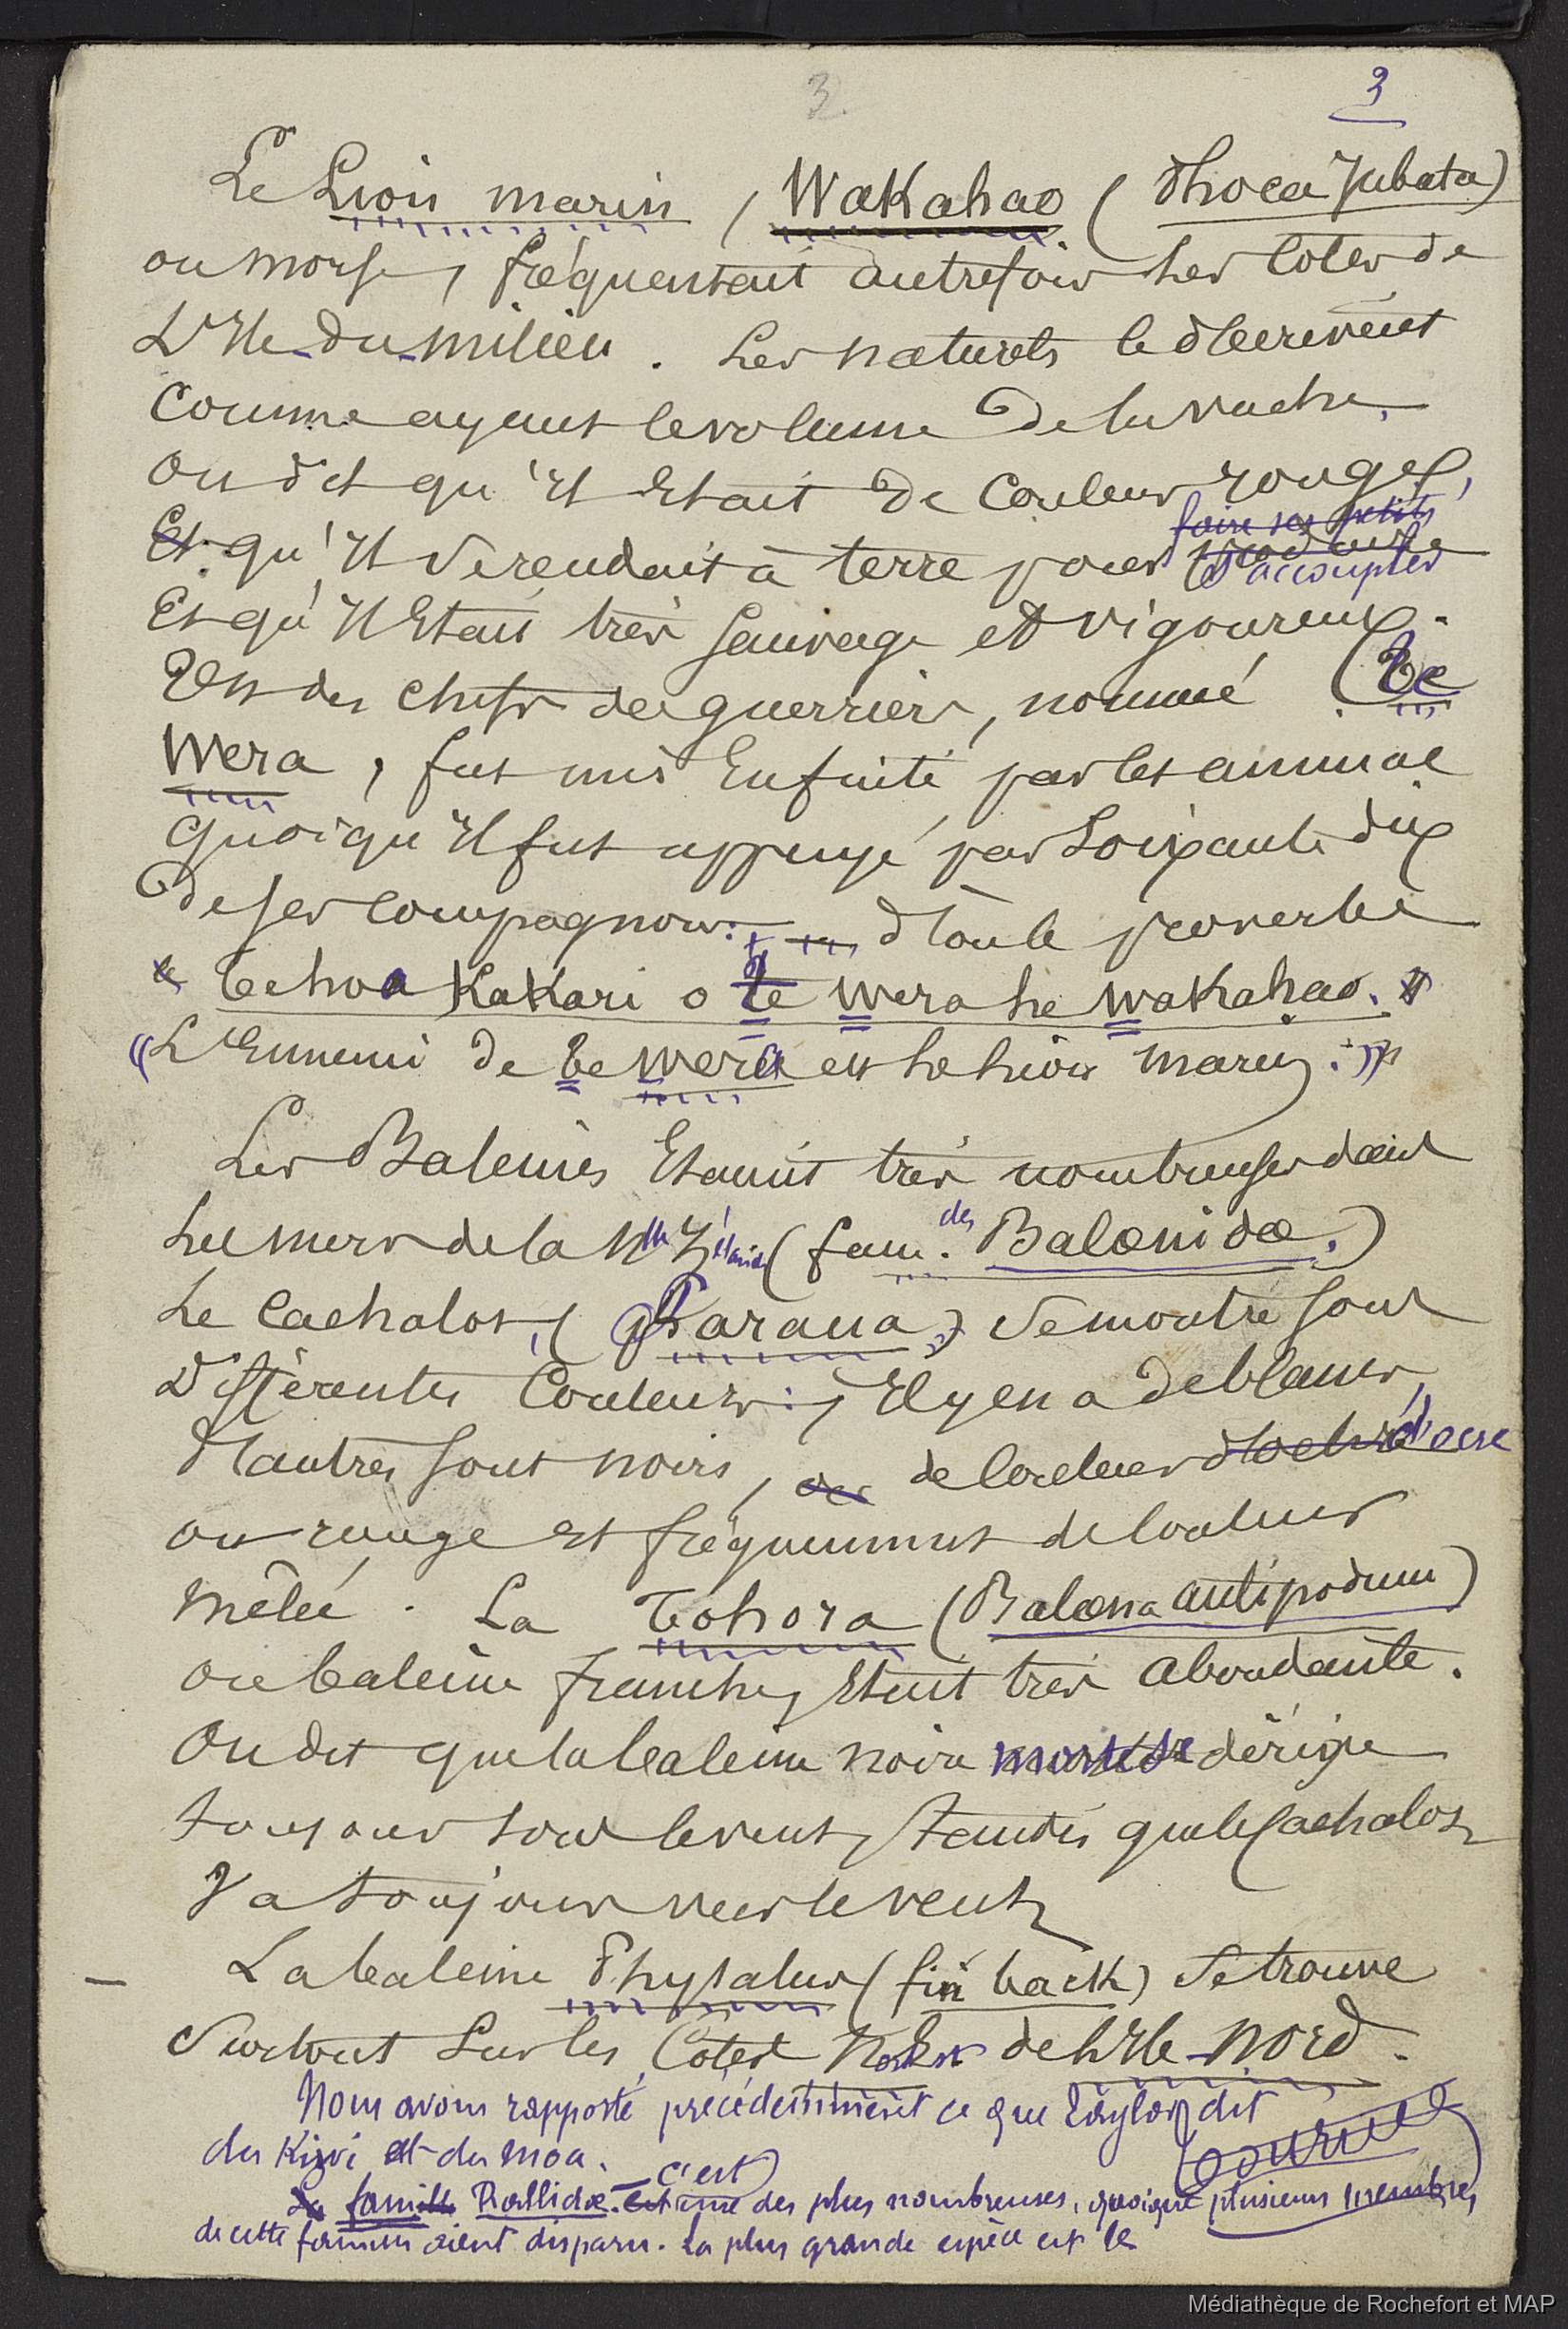 3. 3
Le Lion marin, Wakahao (Phoca Jubata)
ou morse, fréquentait autrefois les Cotes de
L'Ile-du-milieu. Les naturels le décrivent
Comme ayant le volume De la vache,
On dit qu'il Etait De Couleur rouge,
faire ses petits
Et qu'il se rendait à terre pour s'accoupler
Et qu'il Etait très sauvage et vigoureux.
Un des chefs de guerriers, nommé (Te
Wera, fut mis En fuite par cet animal
quoiqu'il fut appuyé par Soixante dix
de ses Compagnons: D'où le proverbe
« Te hoa Kakari o Te Wera he wakahao. »
« L'Ennemi de Te Wera est le Lion marin. »
Les Baleines Etaient très nombreuses dans
Les mers de la Nlle Zélande (fam. des Balænidæ.)
Le Cachalot, (Paraua,) se montre sous
Différentes Couleurs: Il y en a de blancs,
D'autres sont noirs, ou de Couleur d'ochre d'ocre
ou rouge et fréquemment de Couleur
mêlée. La Tohora (Balæna antipodum)
ou baleine franche, Etait très abondante.
On dit que la baleine noire morte se dirige
toujours sous le vent, tandis que le Cachalot
Va toujours vers le vent,
— La baleine Physalus (fin back) se trouve
Surtout sur les Cotes Nord Est de L'Ile-Nord.
Nous avons rapporté précédemment ce que Taylor dit
du Kiwi et du Moa.
c'est
La famille Rallidæ. Est une des plus nombreuses, quoique plusieurs membres
de cette famille aient disparu. La plus grande espèce est le
Médiathèque de Rochefort et MAP